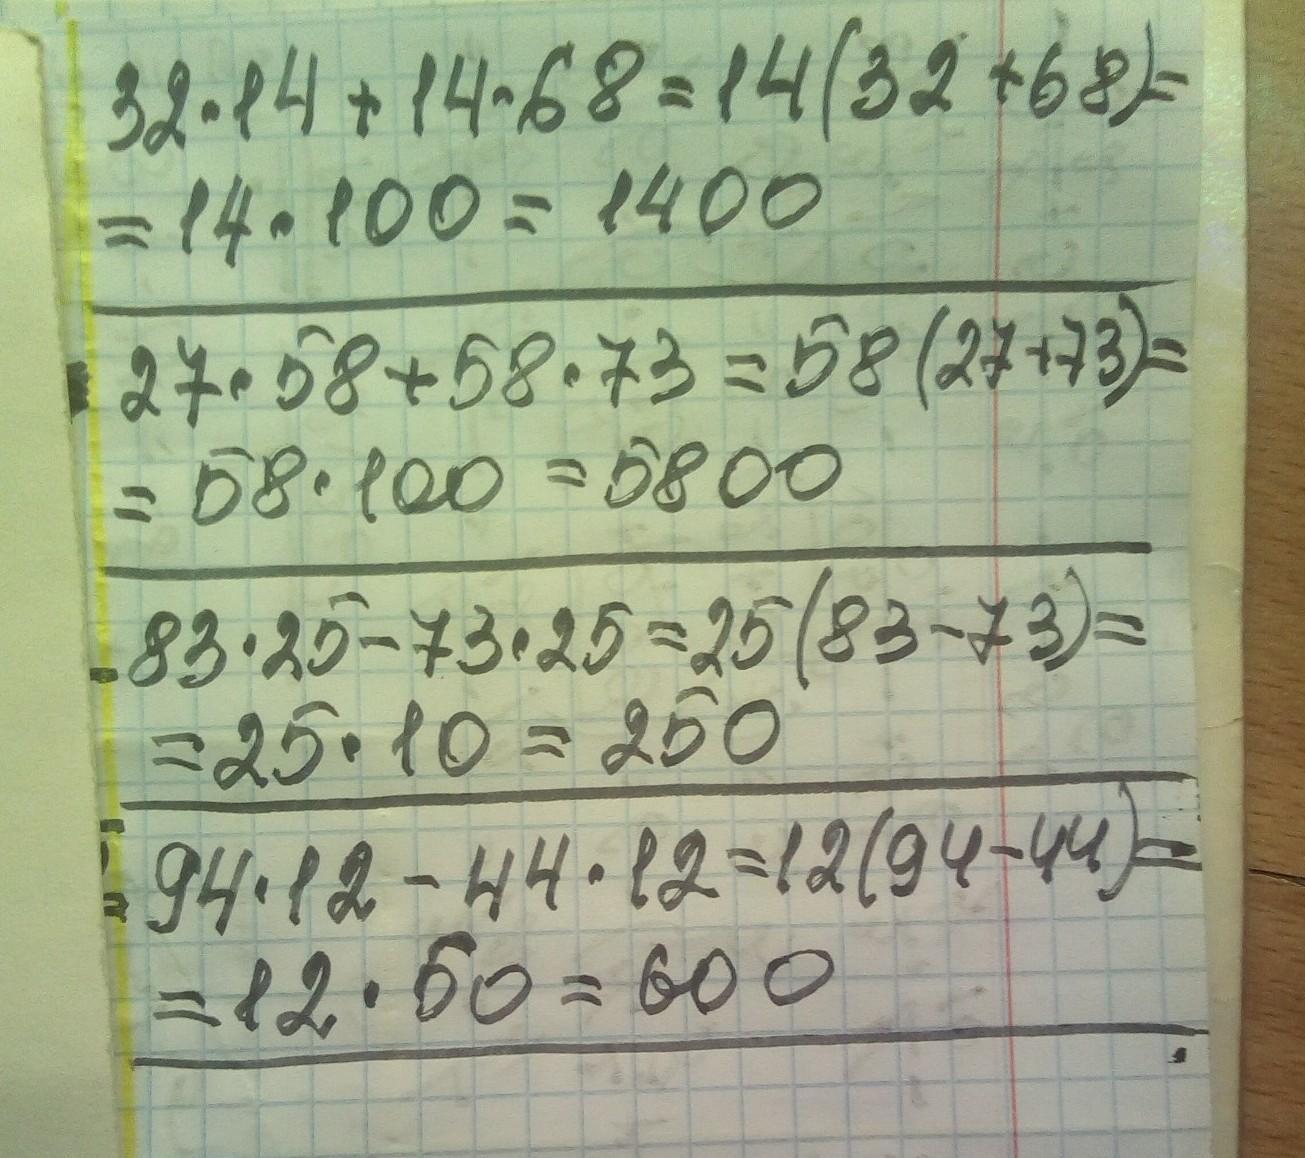 32·14+14·68=14(32+68)=
=14·100=1400
27·58+58·73=58(27+73)=
=58·100=5800
83·25-73·25=25(83-73)=
=25·10=250
94·12-44·12=12(94-44)=
=12·50=600